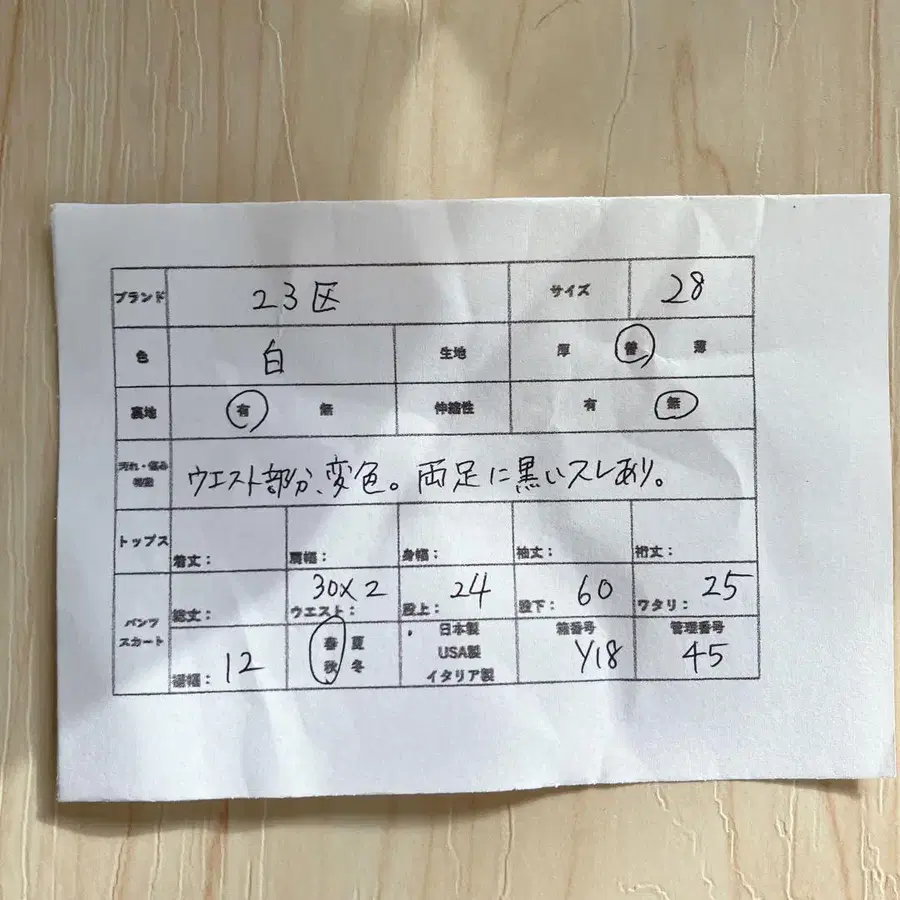 ブランド 23区 サイズ 28
色 白 生地 厚 普 薄
裏地 有 無 伸縮性 有 無
汚れ・傷み
ウエスト部分、変色。両足に黒いスレあり。
トップス 着丈： 肩幅： 身幅： 袖丈： 裄丈：
パンツ
スカート
総丈： ウエスト： 30×2 股上： 24 股下： 60 ワタリ： 25
裾幅： 12
春 夏
秋 冬
日本製
USA製
イタリア製
箱番号
Y18
管理番号
45